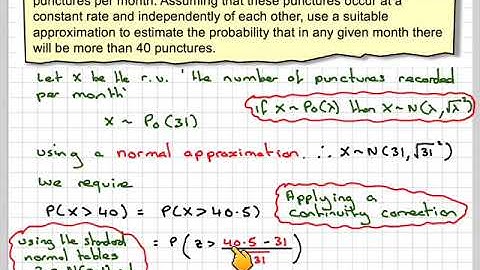 punctures per month. Assuming that these punctures occur at a
constant rate and independently of each other, use a suitable
approximation to estimate the probability that in any given month there
will be more than 40 punctures.
Let X be the r.v. 'the number of punctures recorded
per month'
if X ~ Po(λ) then X ~ N(λ, √λ²)
X ~ Po(31)
using a normal approximation ∴ X ~ N(31, √31²)
We require
P(X > 40) = P(X > 40.5)
Applying a
continuity correction
using the standard
normal tables
= P(Z > 40.5 - 31
√31)